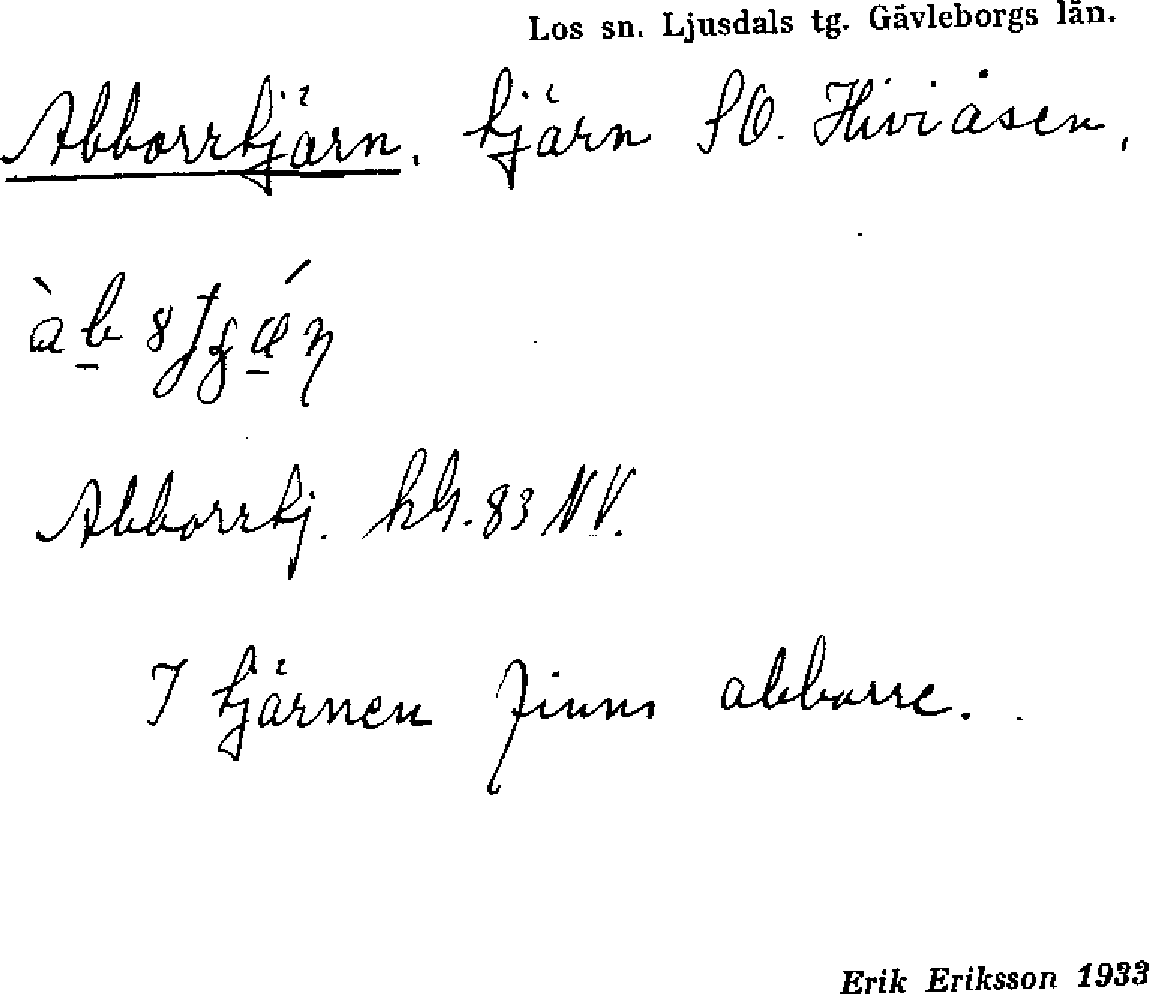 Los sn. Ljusdals tg. Gävleborgs län.
Abborrtjärn. tjärn SO. Hiviåsen.
Abborrtj. kbl. 83 NV.
I tjärnen finns abborre.
Erik Eriksson 1933